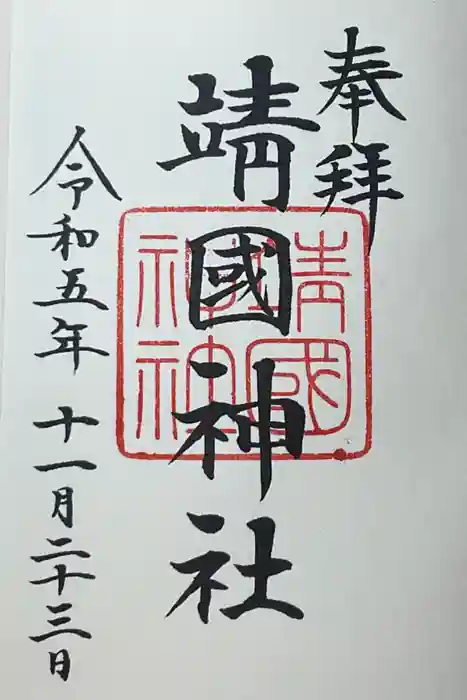 奉拝
靖國神社
靖國神社
令和五年 十一月二十三日